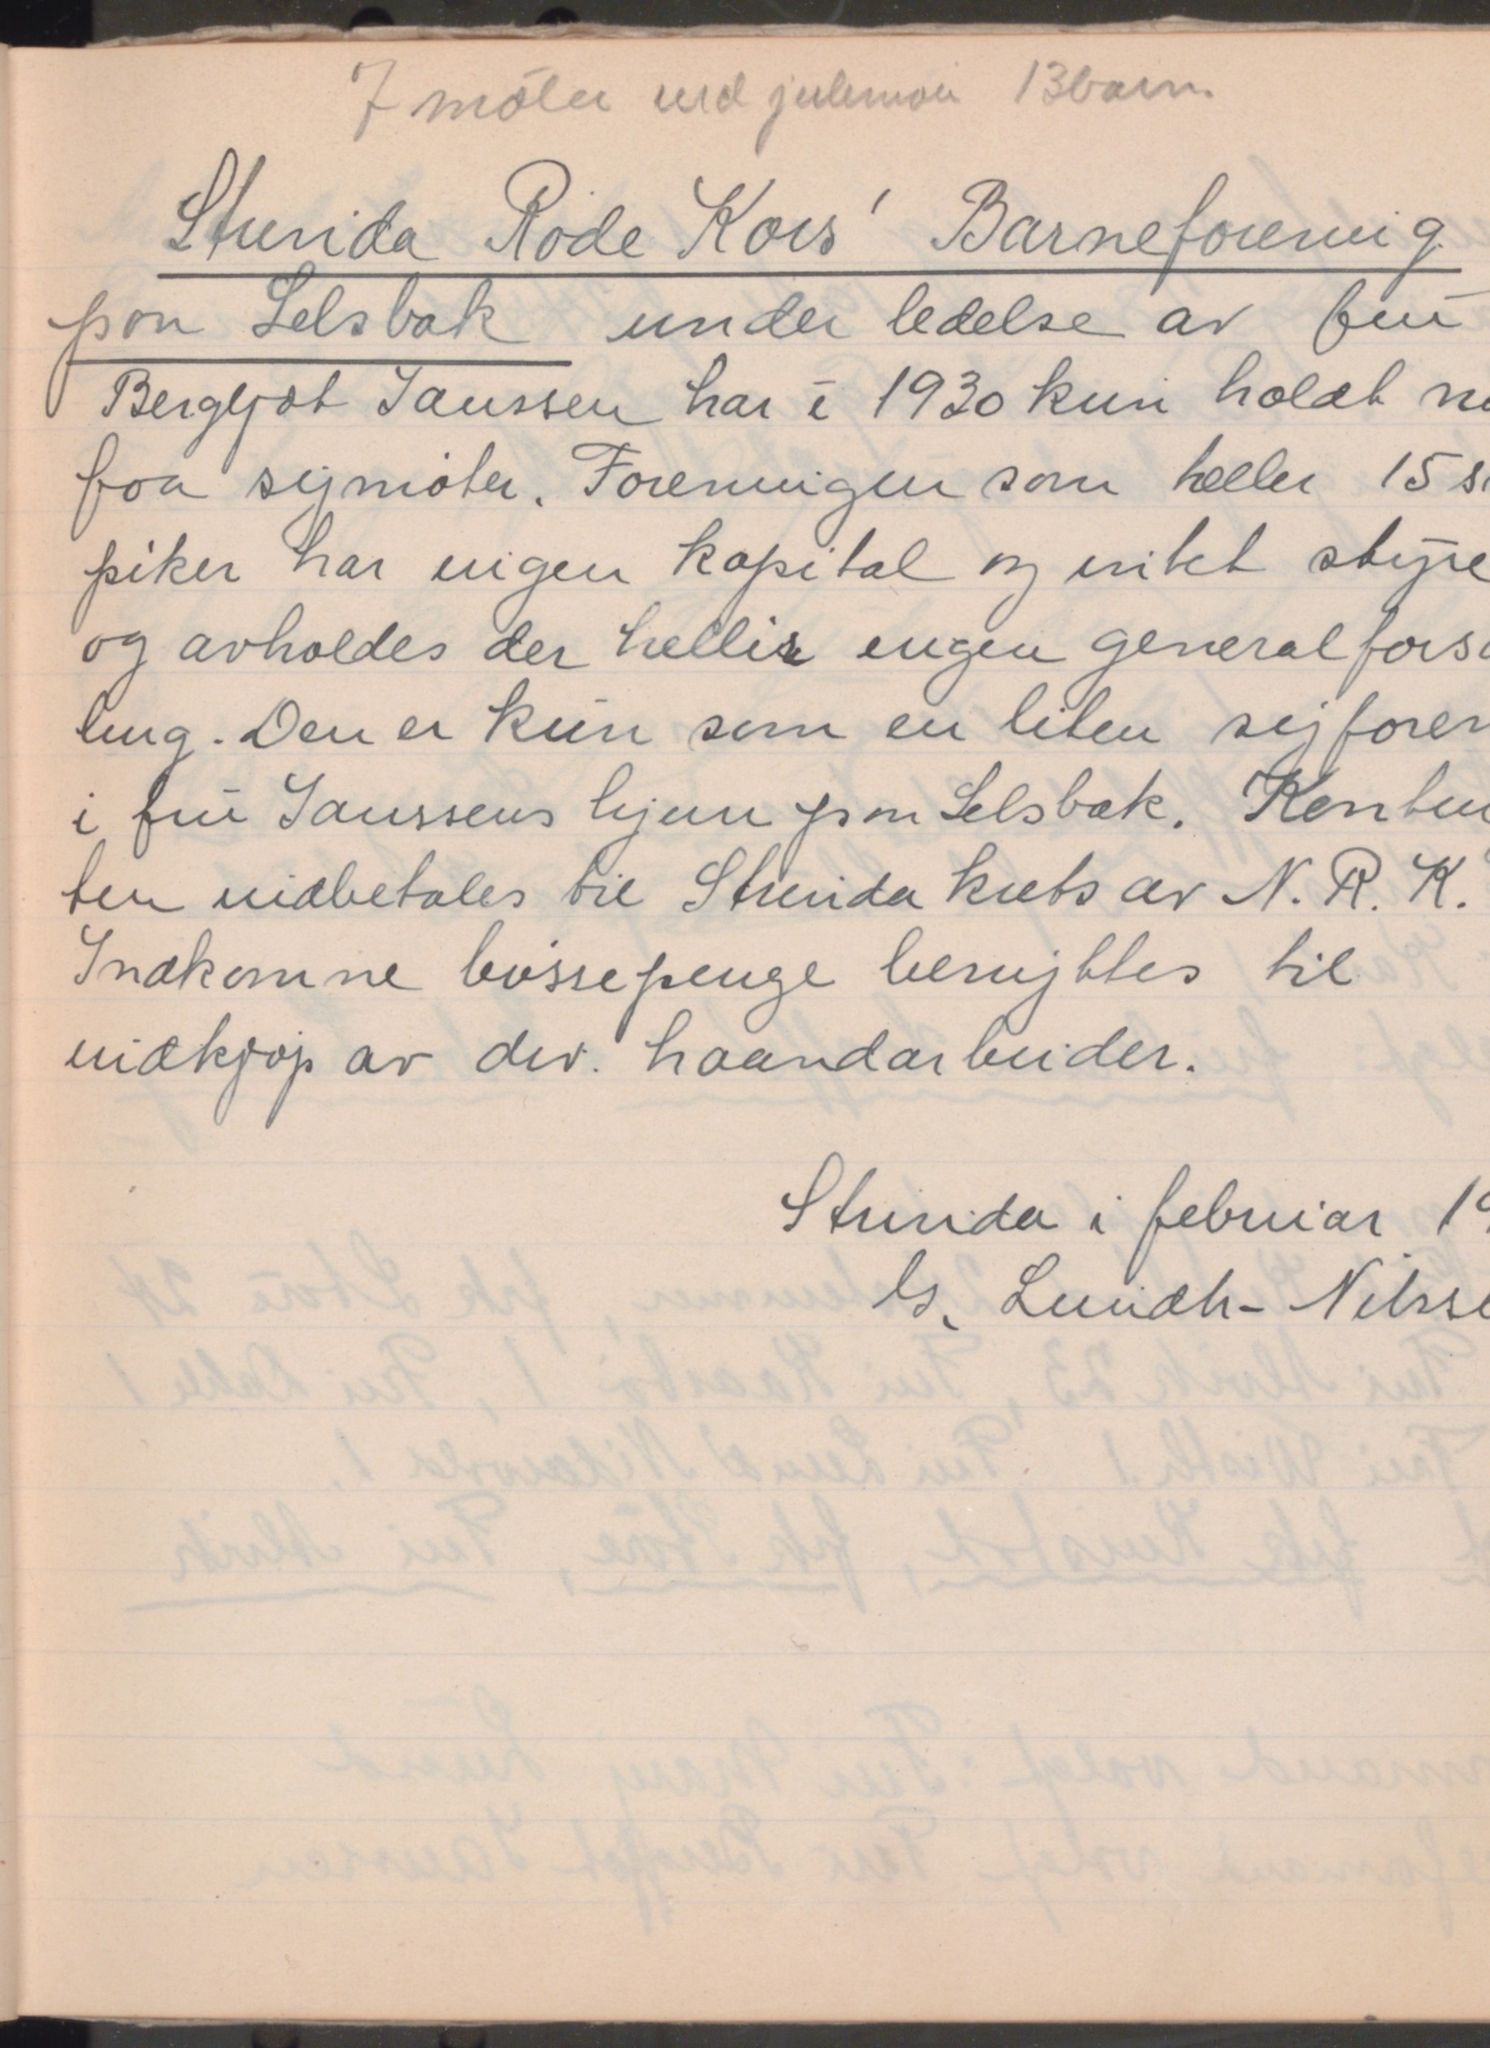 7 møter med julemøte 13 barn.
Strinda Røde Kors' Barneforening
paa Selsbak under ledelse av fru
Bergljot Janssen har i 1930 kun holdt
faa symøter. Foreningen som teller 15
piker har ingen kapital og intet styre
og avholdes der heller ingen generalforsa
ling. Den er kun som en liten syforen
i fru Janssens hjem paa Selsbak. Kontin
ten indbetales til Strinda krets av N. R. K.
Indkomne bøssepenge benyttes til
indkjøp av div. haandarbeider.
Strinda i februar 19
G. Lundh-Nilsse